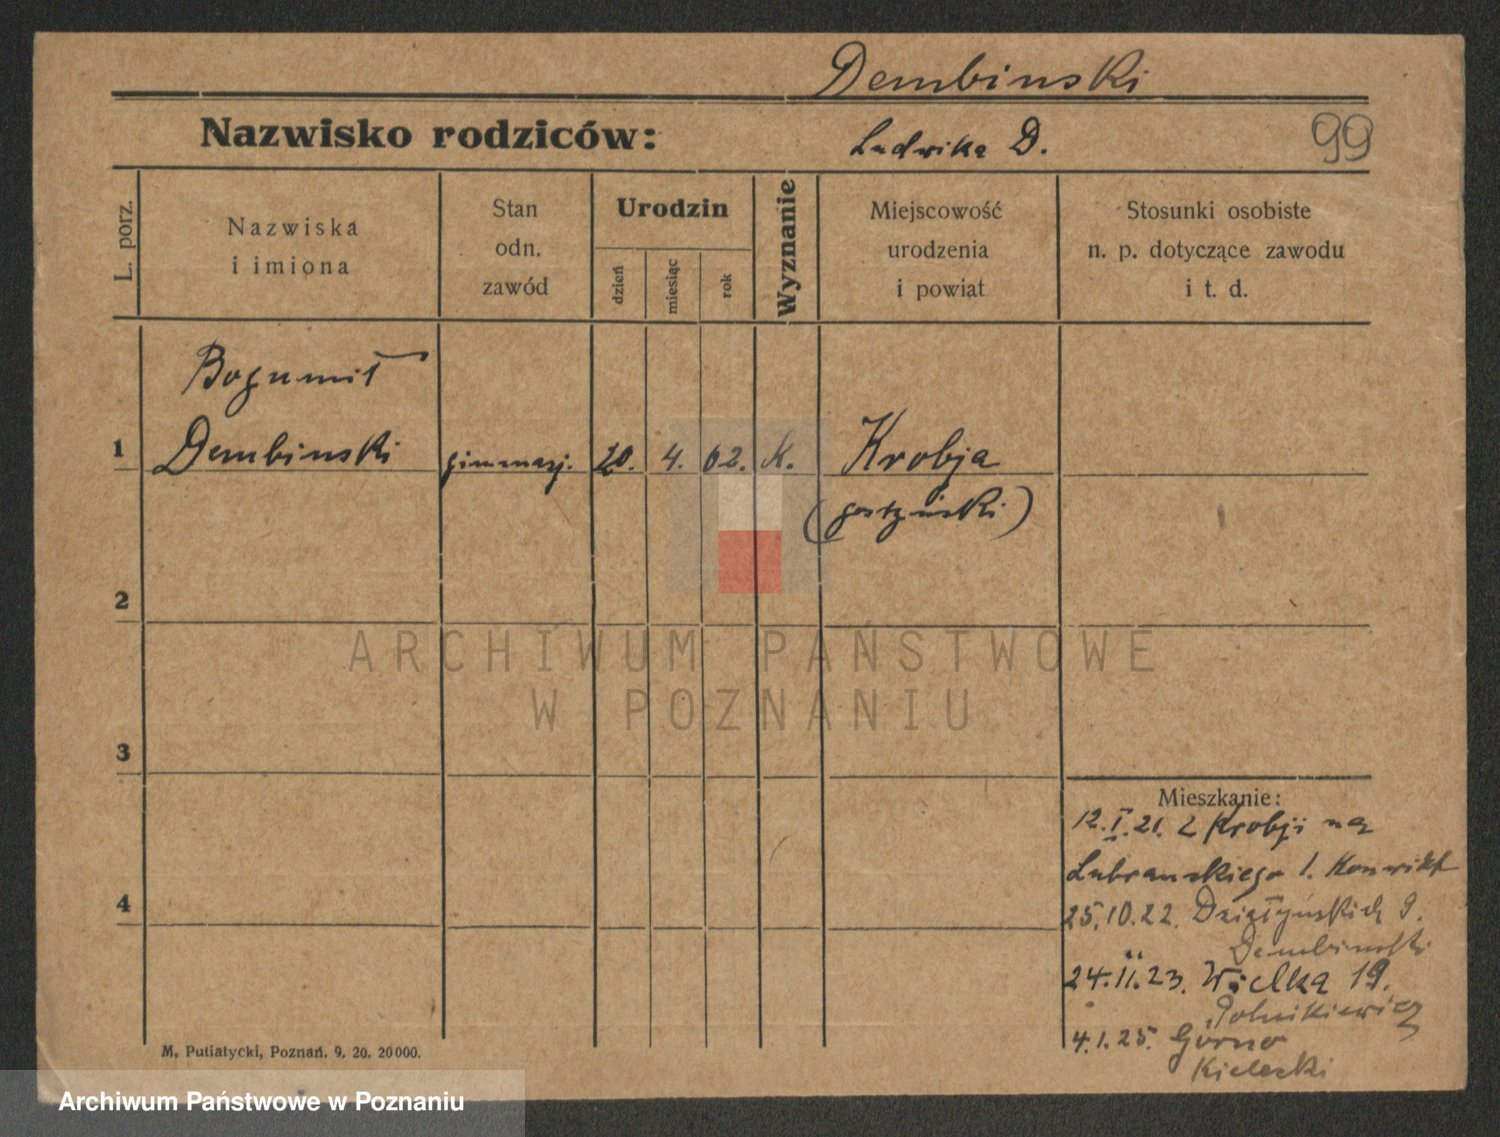 Dembinski
Nazwisko rodziców: Ludwika D. 99
L. porz.
Nazwiska
i imiona
Stan
odn.
zawód
Urodzin
dzień
miesiąc
rok
Wyznanie
Miejscowość
urodzenia
i powiat
Stosunki osobiste
n. p. dotyczące zawodu
i t. d.
Bogumił
1 Dembinski gimnazj. 20. 4. 02. K. Krobja
(gostyński)
2
3
4
Mieszkanie:
12.I.21. z Krobji na
Lubranskiego 1. Konwikt
25.10.22. Działyńskich 9.
Dembinski
24.II.23. Wielka 19.
4.1.25. Górno
Kielecki
M. Putiatycki, Poznań. 9. 20. 20000.
ARCHIWUM PAŃSTWOWE
W POZNANIU
Archiwum Państwowe w Poznaniu